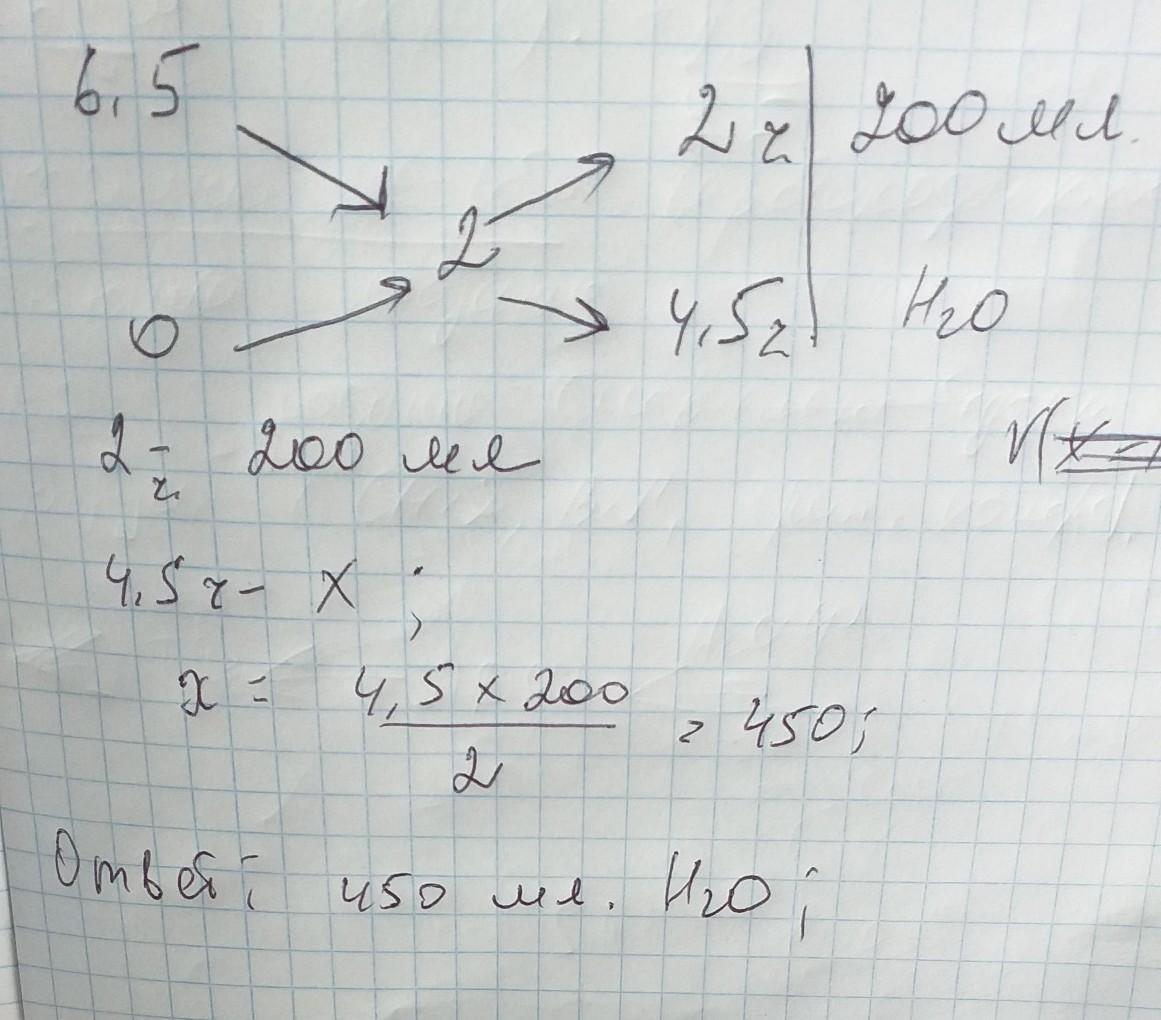 6,5
2 г 200 мл.
2
0
4,5 г H2O
2 г - 200 мл
V(
4,5 г - X ;
x = 4,5 x 200 / 2 = 450;
Ответ: 450 мл. H2O;